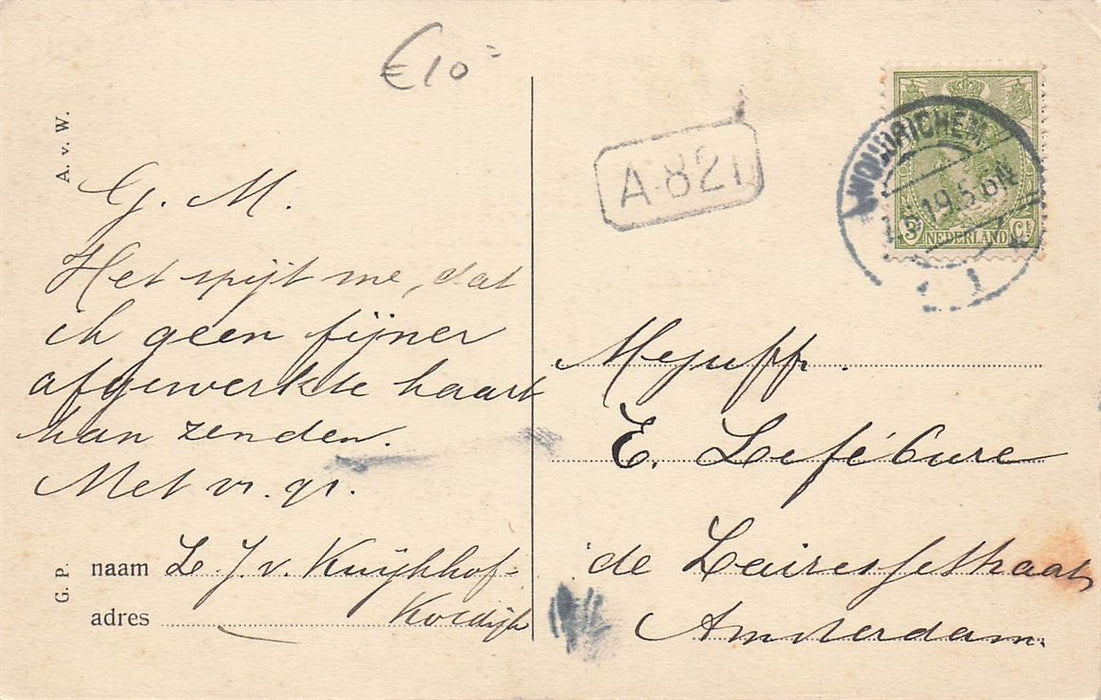 €10-
A. v. W.
G. M.
Het spijt me, dat
ik geen fijner
afgewerkte kaart
kan zenden.
Met vr. gr.
G. P.
naam L. J. v. Kuijkhof-
adres Kordijk
A-821
WOUDRICHEM
19.5.6N
1
3 Ct
NEDERLAND
Mejuffr.
E. Lefébure
de Lairessestraat
Amsterdam.